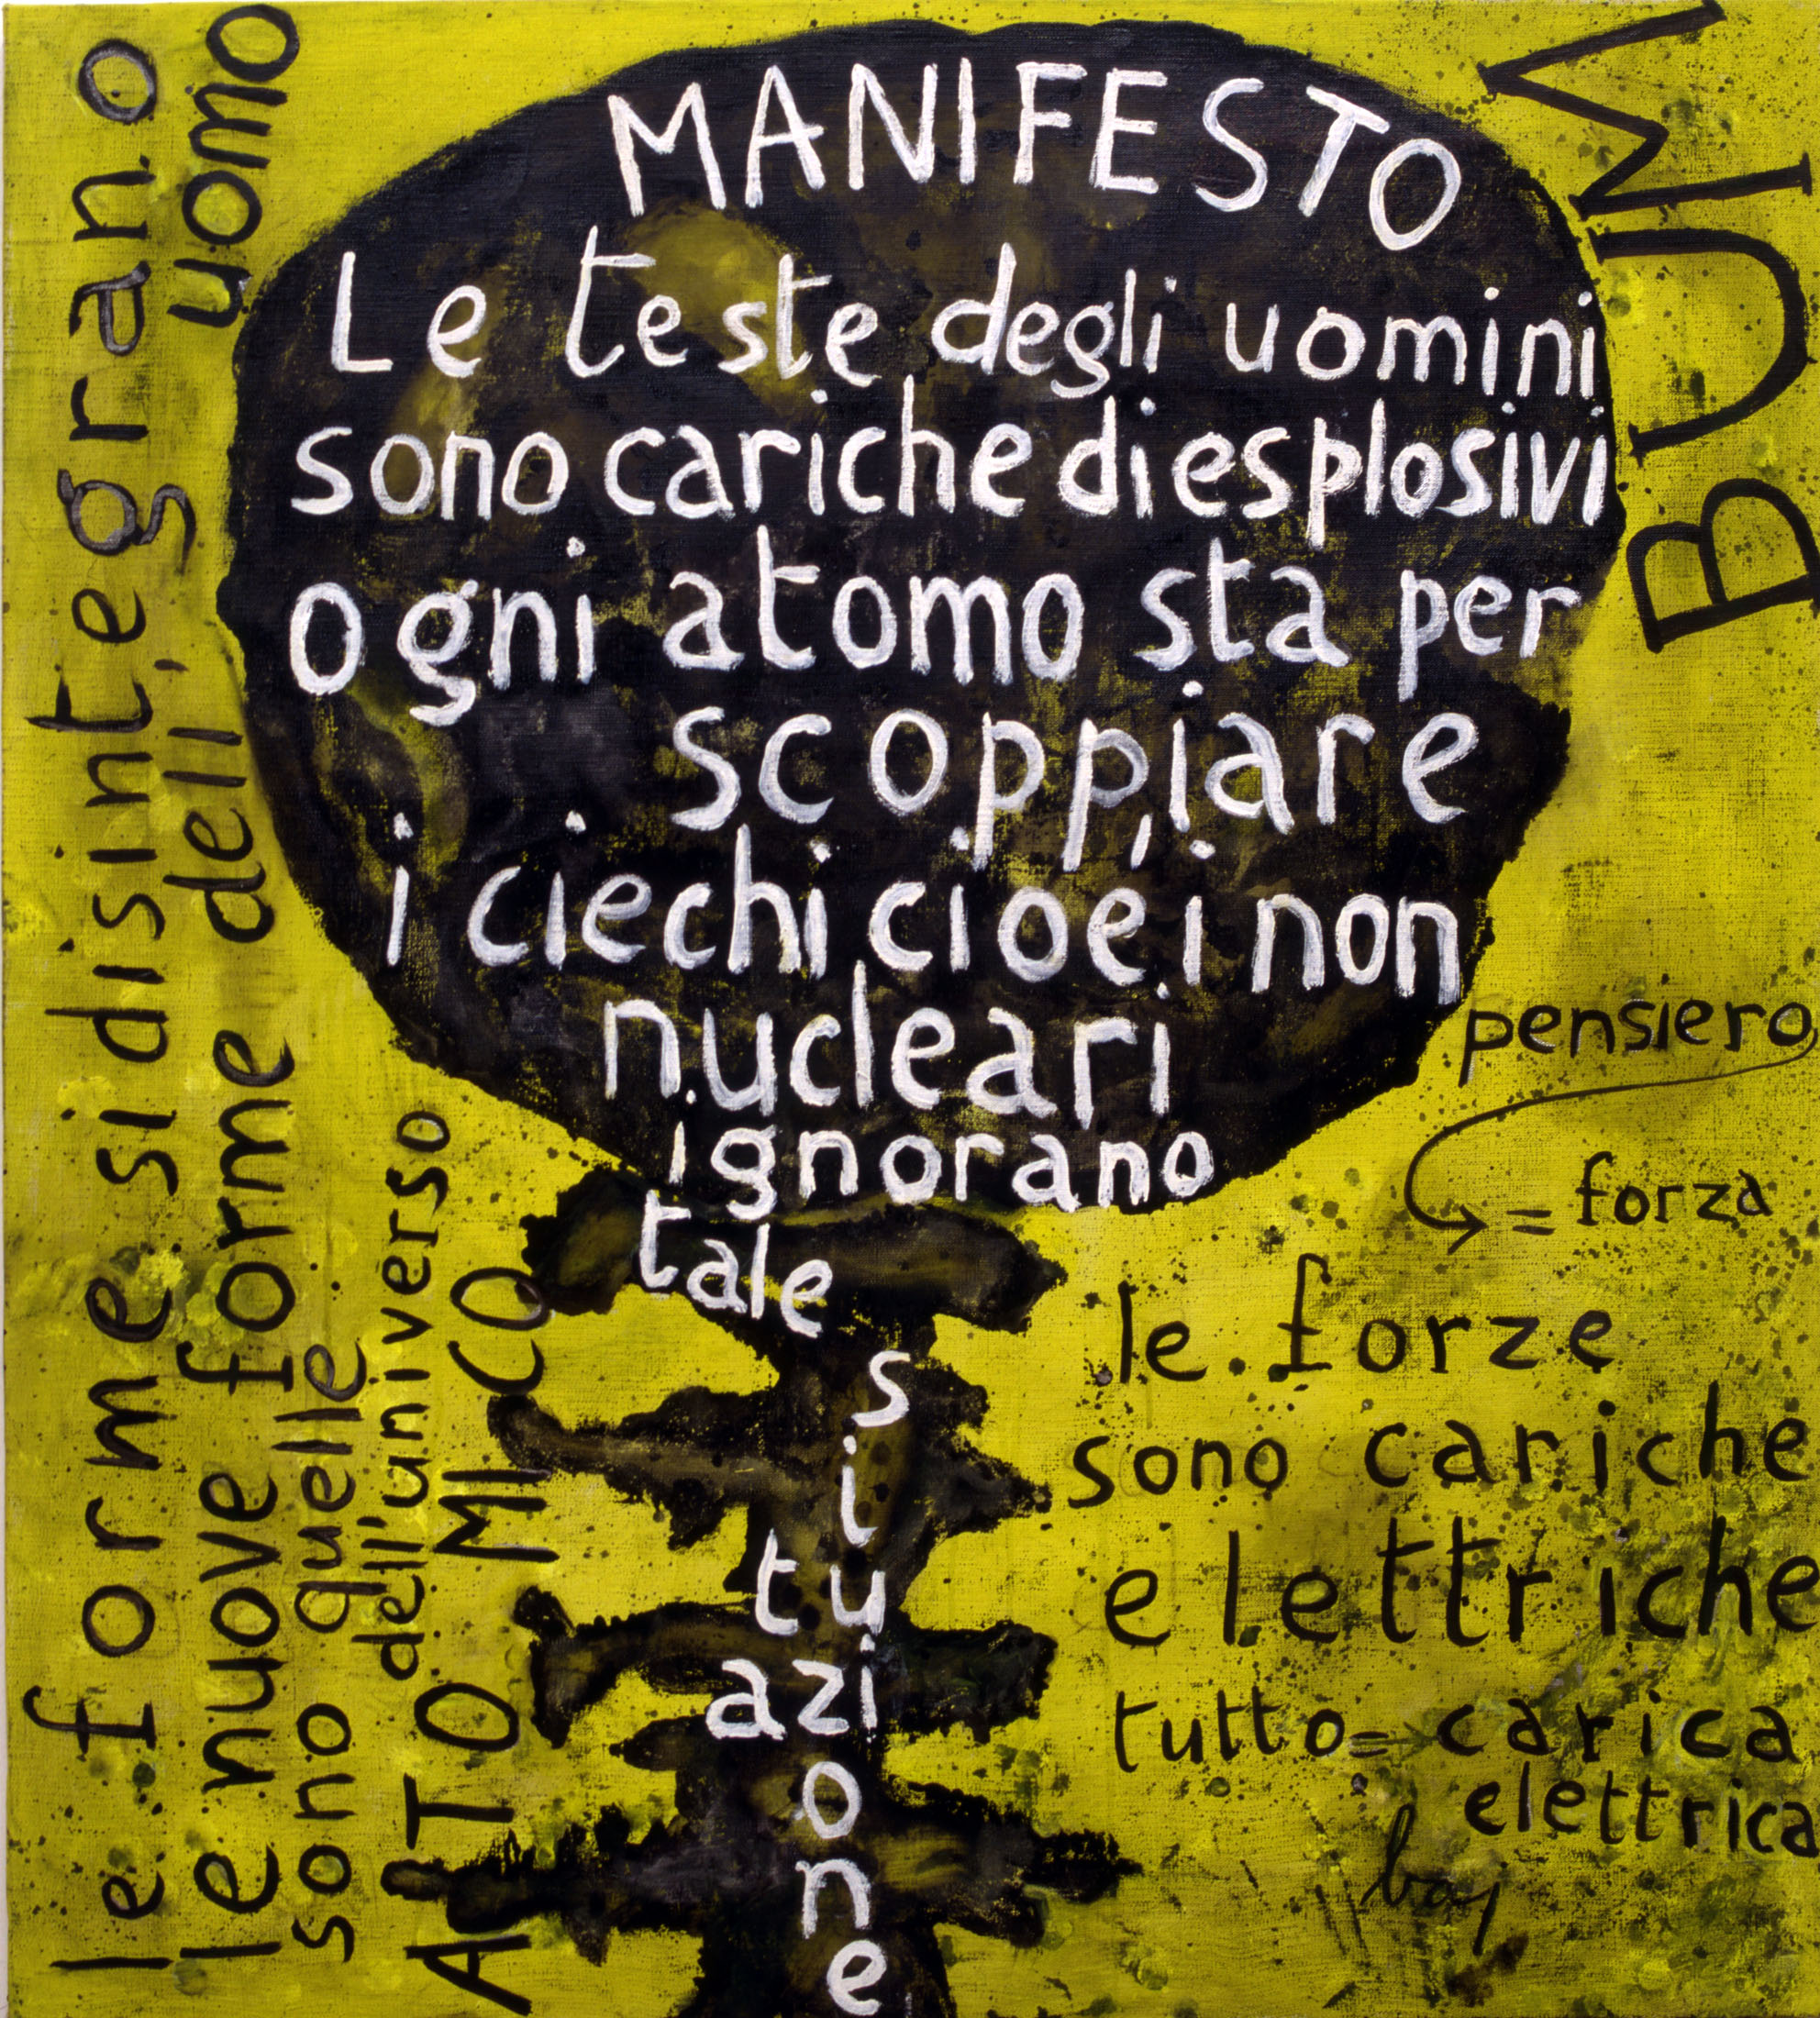 MANIFESTO
Le teste degli uomini
sono cariche di esplosivi
ogni atomo sta per
scoppiare
i ciechi cioe i non
nucleari
ignorano
tale
situazione
BUM
pensiero
= forza
le forze
sono cariche
elettriche
tutto = carica
elettrica
baj
le forme si disintegrano
le nuove forme dell'uomo
sono quelle
dell'universo
ATOMICO